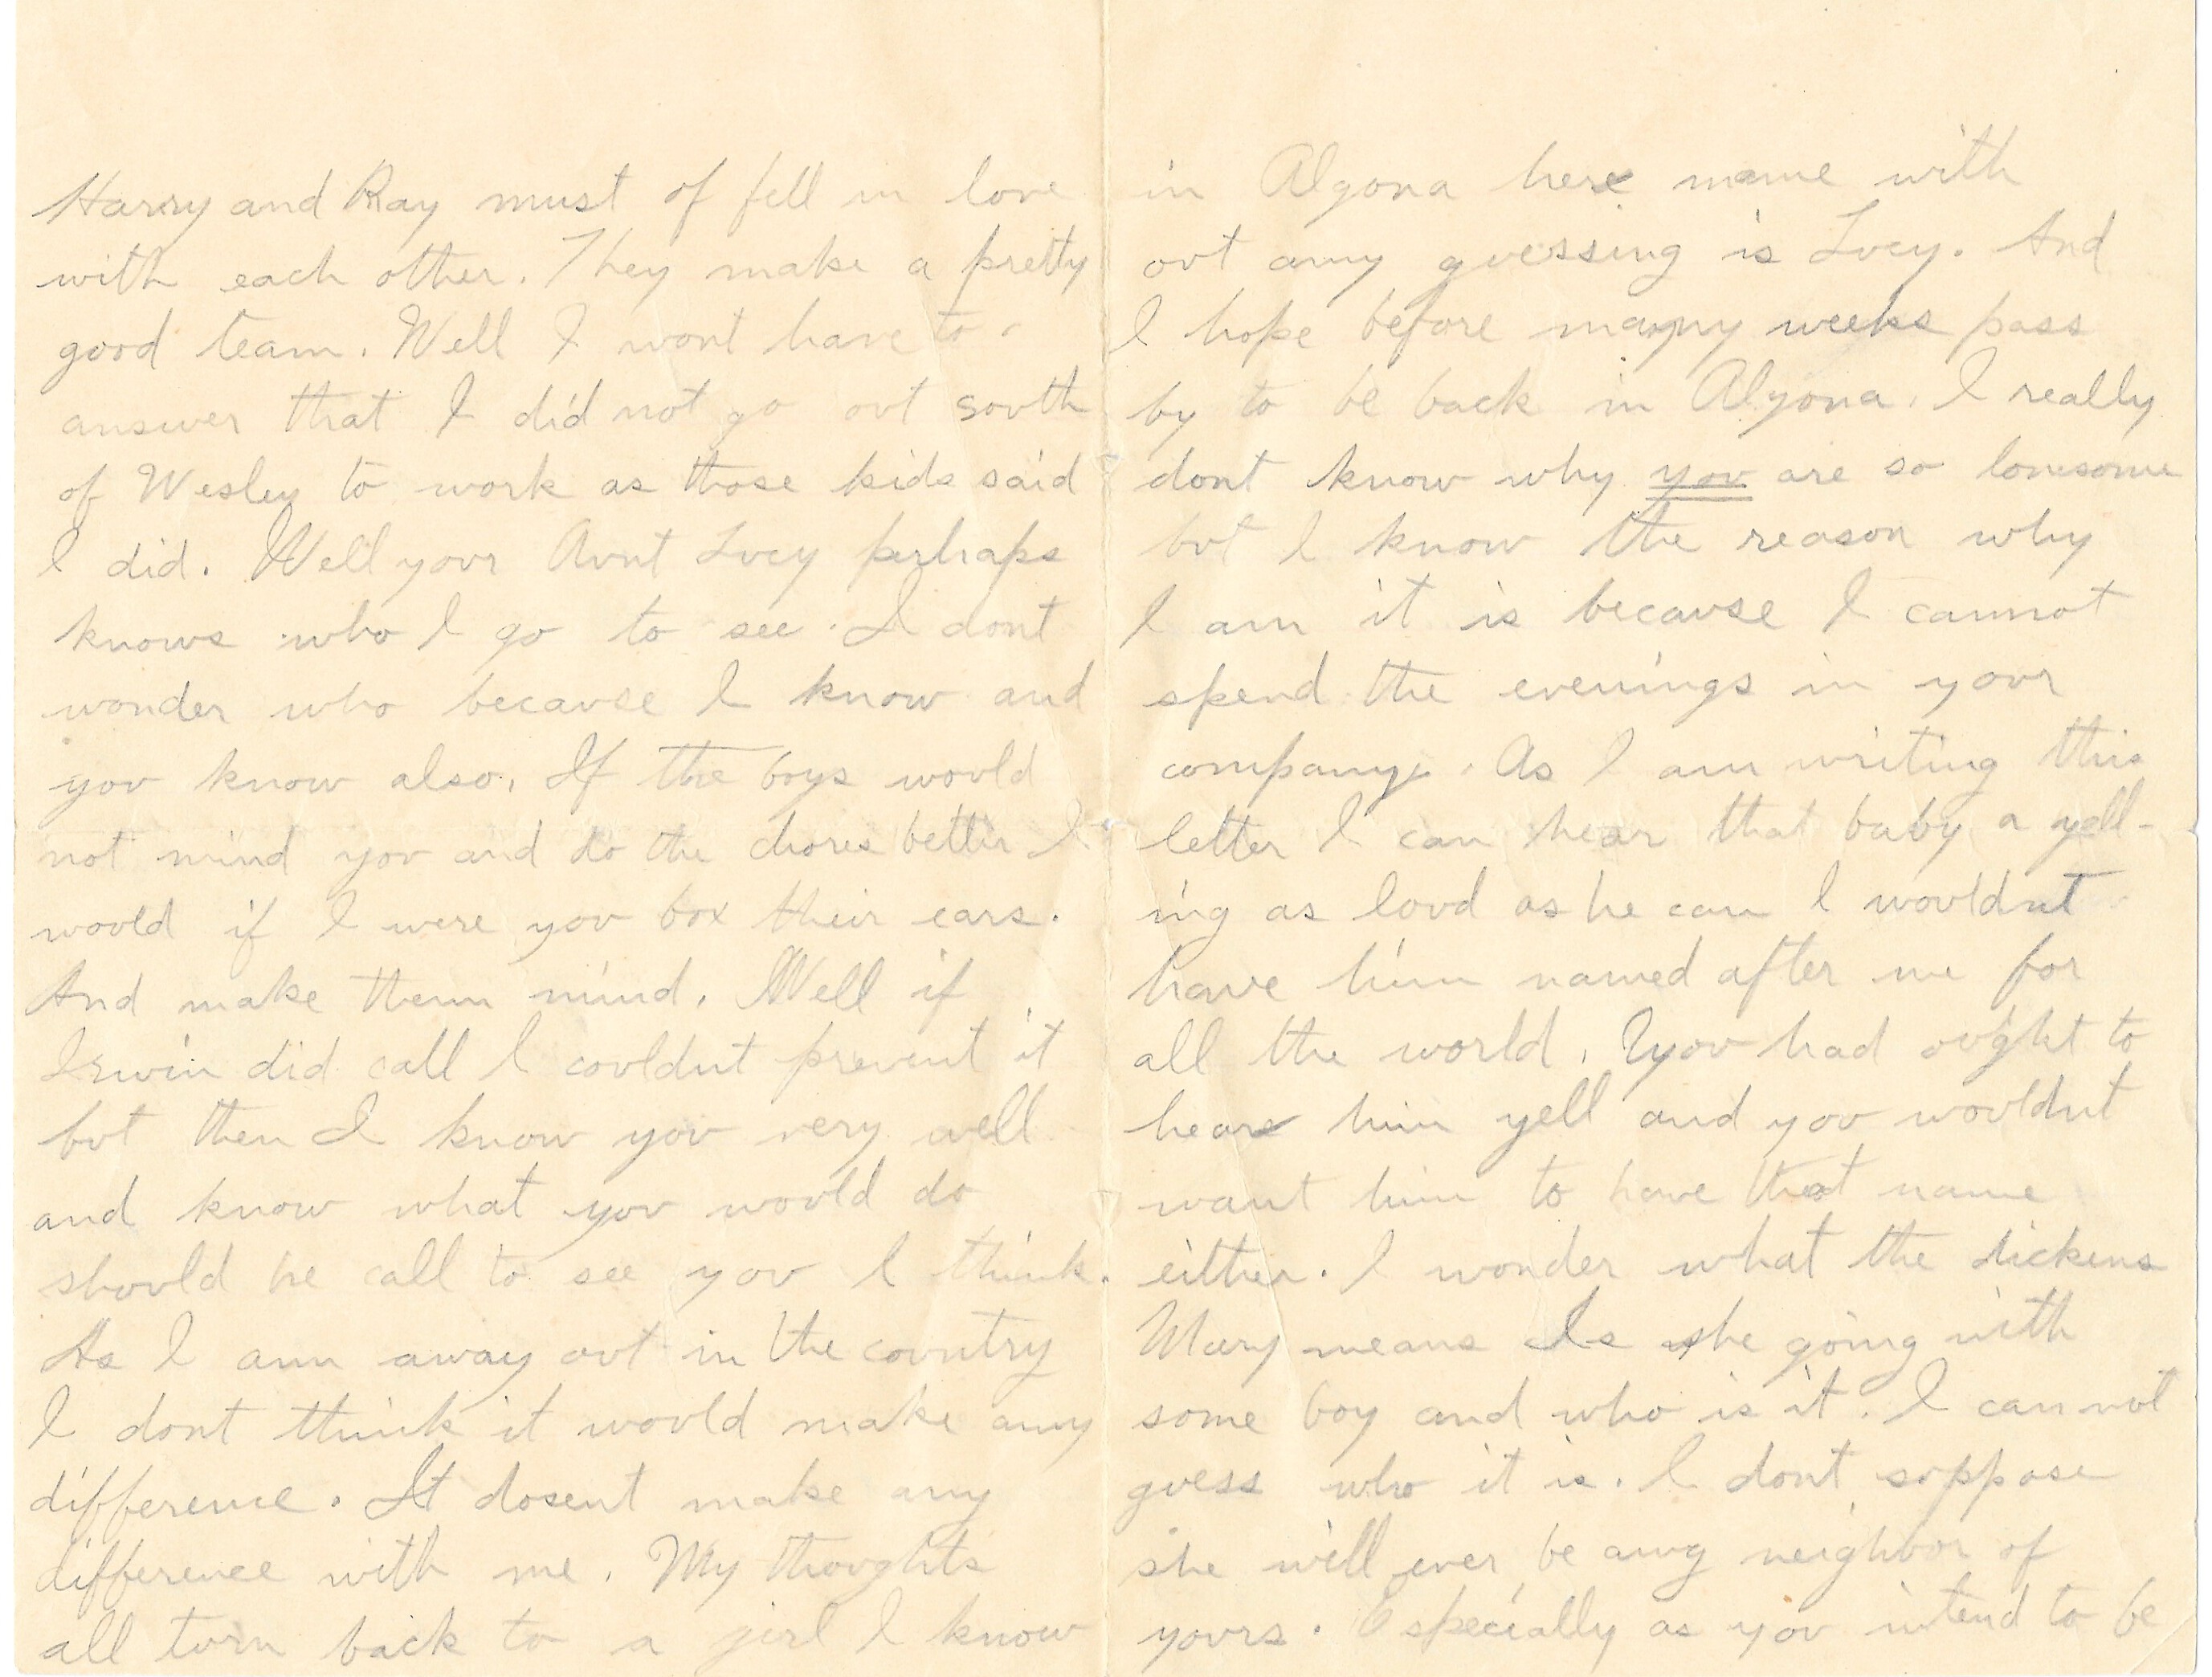 Harry and Ray must of fell in love
with each other. They make a pretty
good team. Well I wont have to
answer that I did not go out south
of Wesley to work as those kids said
I did. Well your Aunt Lucy perhaps
knows who I go to see. I dont
wonder who because I know and
you know also. If the boys would
not mind you and do the chores better I
would if I were you box their ears.
And make them mind. Well if
Irwin did call I couldnt prevent it
but then I know you very well
and know what you would do
should he call to see you I think.
As I am away out in the country
I dont think it would make any
difference. It dosent make any
difference with me. My thoughts
all turn back to a girl I know
in Algona here name with
out any guessing is Lucy. And
I hope before many weeks pass
by to be back in Algona. I really
dont know why you are so lonesome
but I know the reason why
I am it is because I cannot
spend the evenings in your
company. As I am writing this
letter I can hear that baby a yell-
ing as loud as he can I wouldnt
have him named after me for
all the world. You had ought to
hear him yell and you wouldnt
want him to have that name
either. I wonder what the dickens
Mary means Is she going with
some boy and who is it. I can not
guess who it is. I dont suppose
she will ever be any neighbor of
yours. Especially as you intend to be